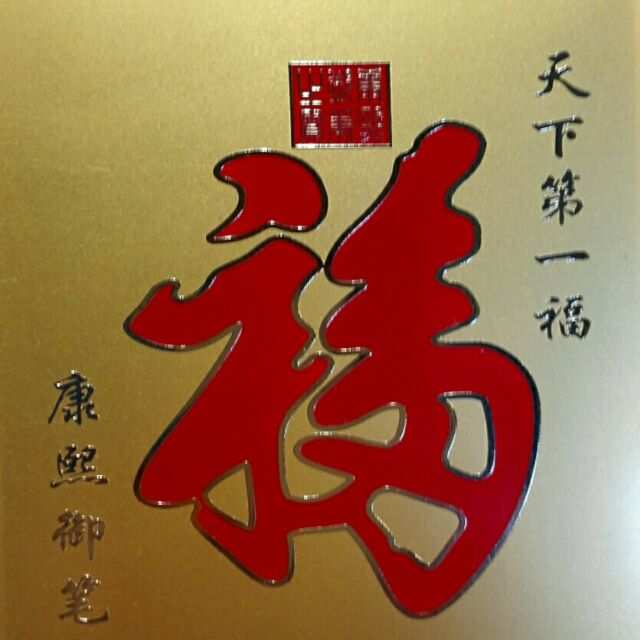 天下第一福
福
康熙御笔